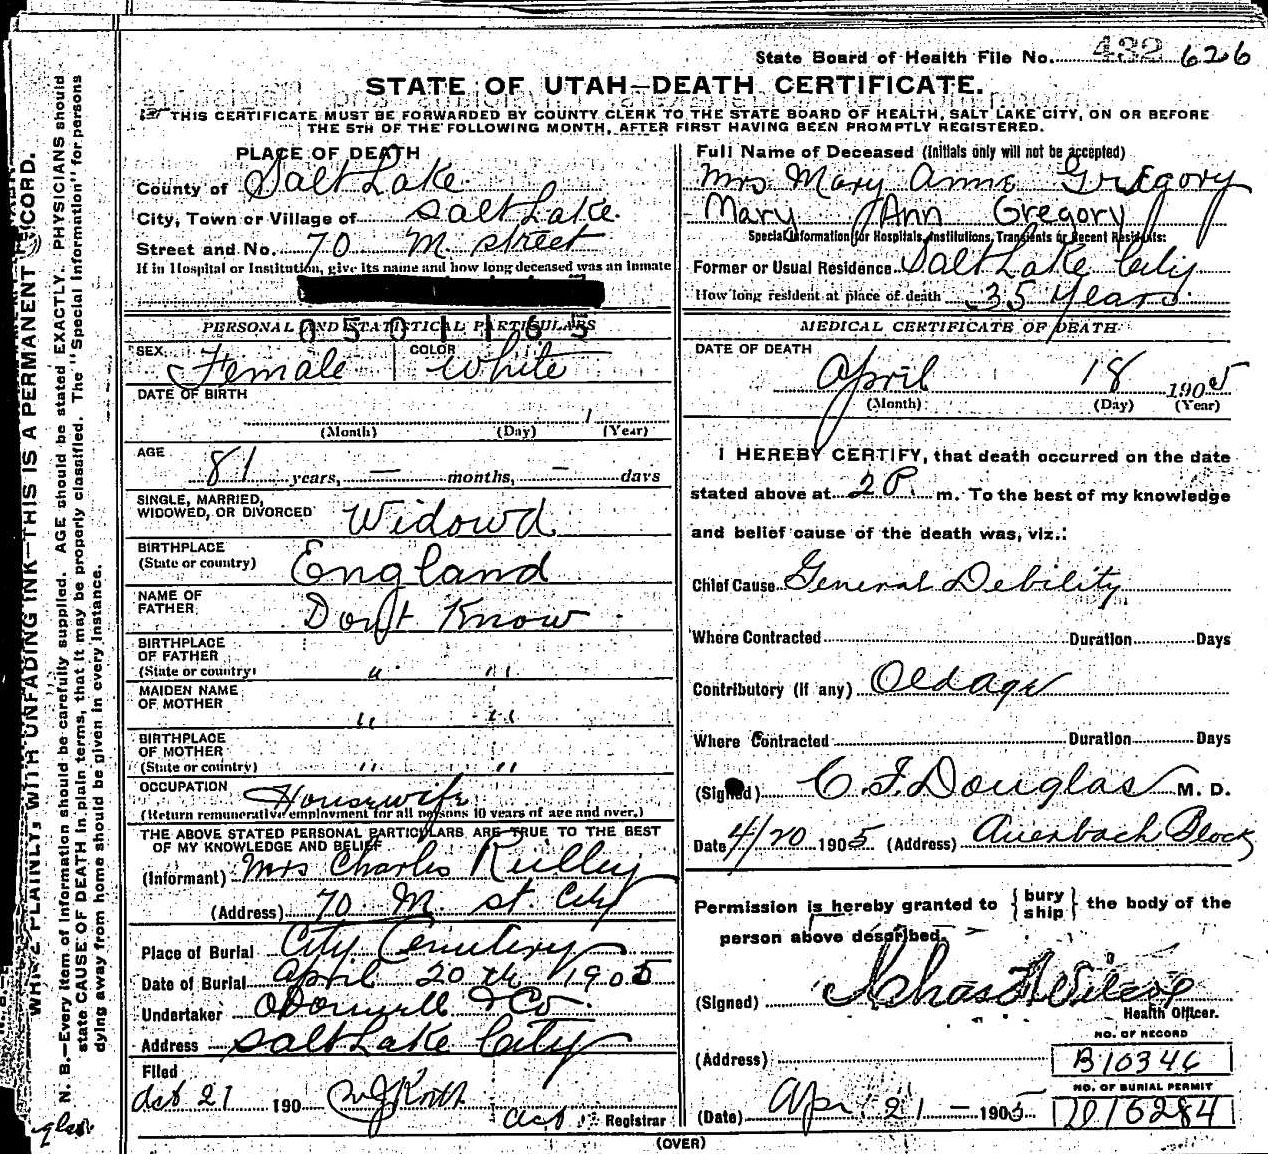 State Board of Health File No. 432 626
STATE OF UTAH—DEATH CERTIFICATE.
THIS CERTIFICATE MUST BE FORWARDED BY COUNTY CLERK TO THE STATE BOARD OF HEALTH, SALT LAKE CITY, ON OR BEFORE
THE 5TH OF THE FOLLOWING MONTH, AFTER FIRST HAVING BEEN PROMPTLY REGISTERED.
PLACE OF DEATH
County of Salt Lake
City, Town or Village of Salt Lake
Street and No. 70 M. street
If in Hospital or Institution, give its name and how long deceased was an inmate
Full Name of Deceased (Initials only will not be accepted)
Mrs Mary Anne Gregory
Mary Ann Gregory
Special Information for Hospitals, Institutions, Transients or Recent Residents:
Former or Usual Residence Salt Lake City
How long resident at place of death 35 Years
PERSONAL AND STATISTICAL PARTICULARS
0501165
SEX Female COLOR White
DATE OF BIRTH
1
(Month) (Day) (Year)
AGE
81 years, — months, — days
SINGLE, MARRIED,
WIDOWED, OR DIVORCED Widowd
BIRTHPLACE
(State or country) England
NAME OF
FATHER Don't Know
BIRTHPLACE
OF FATHER
(State or country) " "
MAIDEN NAME
OF MOTHER
" "
BIRTHPLACE
OF MOTHER
(State or country) " "
OCCUPATION Housewife
(Return remunerative employment for all persons 10 years of age and over.)
THE ABOVE STATED PERSONAL PARTICULARS ARE TRUE TO THE BEST
OF MY KNOWLEDGE AND BELIEF
(Informant) Mrs Charles
(Address) 70 M. st. City
Place of Burial City Cemetery
Date of Burial April 20th 1905
Undertaker O'Donnell & Co.
Address Salt Lake City
Filed
21 190
Registrar
MEDICAL CERTIFICATE OF DEATH
DATE OF DEATH
April 18 1905
(Month) (Day) (Year)
I HEREBY CERTIFY, that death occurred on the date
stated above at 2 P. m. To the best of my knowledge
and belief cause of the death was, viz.:
Chief Cause General Debility
Where Contracted Duration Days
Contributory (if any) Old age
Where Contracted Duration Days
(Signed) C. F. Douglas M. D.
Date 4/20 1905 (Address) Auerbach Block
Permission is hereby granted to { bury
ship } the body of the
person above described.
(Signed) Chas F Wilcox
Health Officer.
NO. OF RECORD
(Address) B10346
NO. OF BURIAL PERMIT
(Date) Apr 21 — 1905 D15284
(OVER)
WRITE PLAINLY, WITH UNFADING INK—THIS IS A PERMANENT RECORD.
N. B.—Every item of information should be carefully supplied. AGE should be stated EXACTLY. PHYSICIANS should
state CAUSE OF DEATH in plain terms, that it may be properly classified. The "Special Information" for persons
dying away from home should be given in every instance.